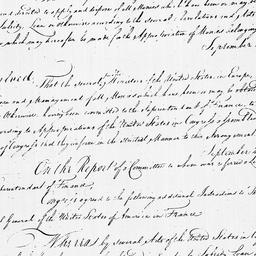 and to apply and dispose of all Monies which have been or may be
Subsidy, Loan or otherwise according to the several Resolutions and Acts
which may hereafter be made for the Appropriation of Monies belonging
September
Resolved That the several Ministers of the United States in Europe,
and Management of all Monies which have been or may be obtained
Otherwise having been committed to the Superintendant of Finance, to
according to Appropriations of the United States in Congress assembled
of Congress that they conform on the strictest Manner to this Arrangement
September
On the Report of a Committee to whom was referred a
Superintendant of Finance
Congress agreed to the following additional Instructions to
General of the United States of America in France
Whereas by several Acts of the United States in
Subsidy, Loan